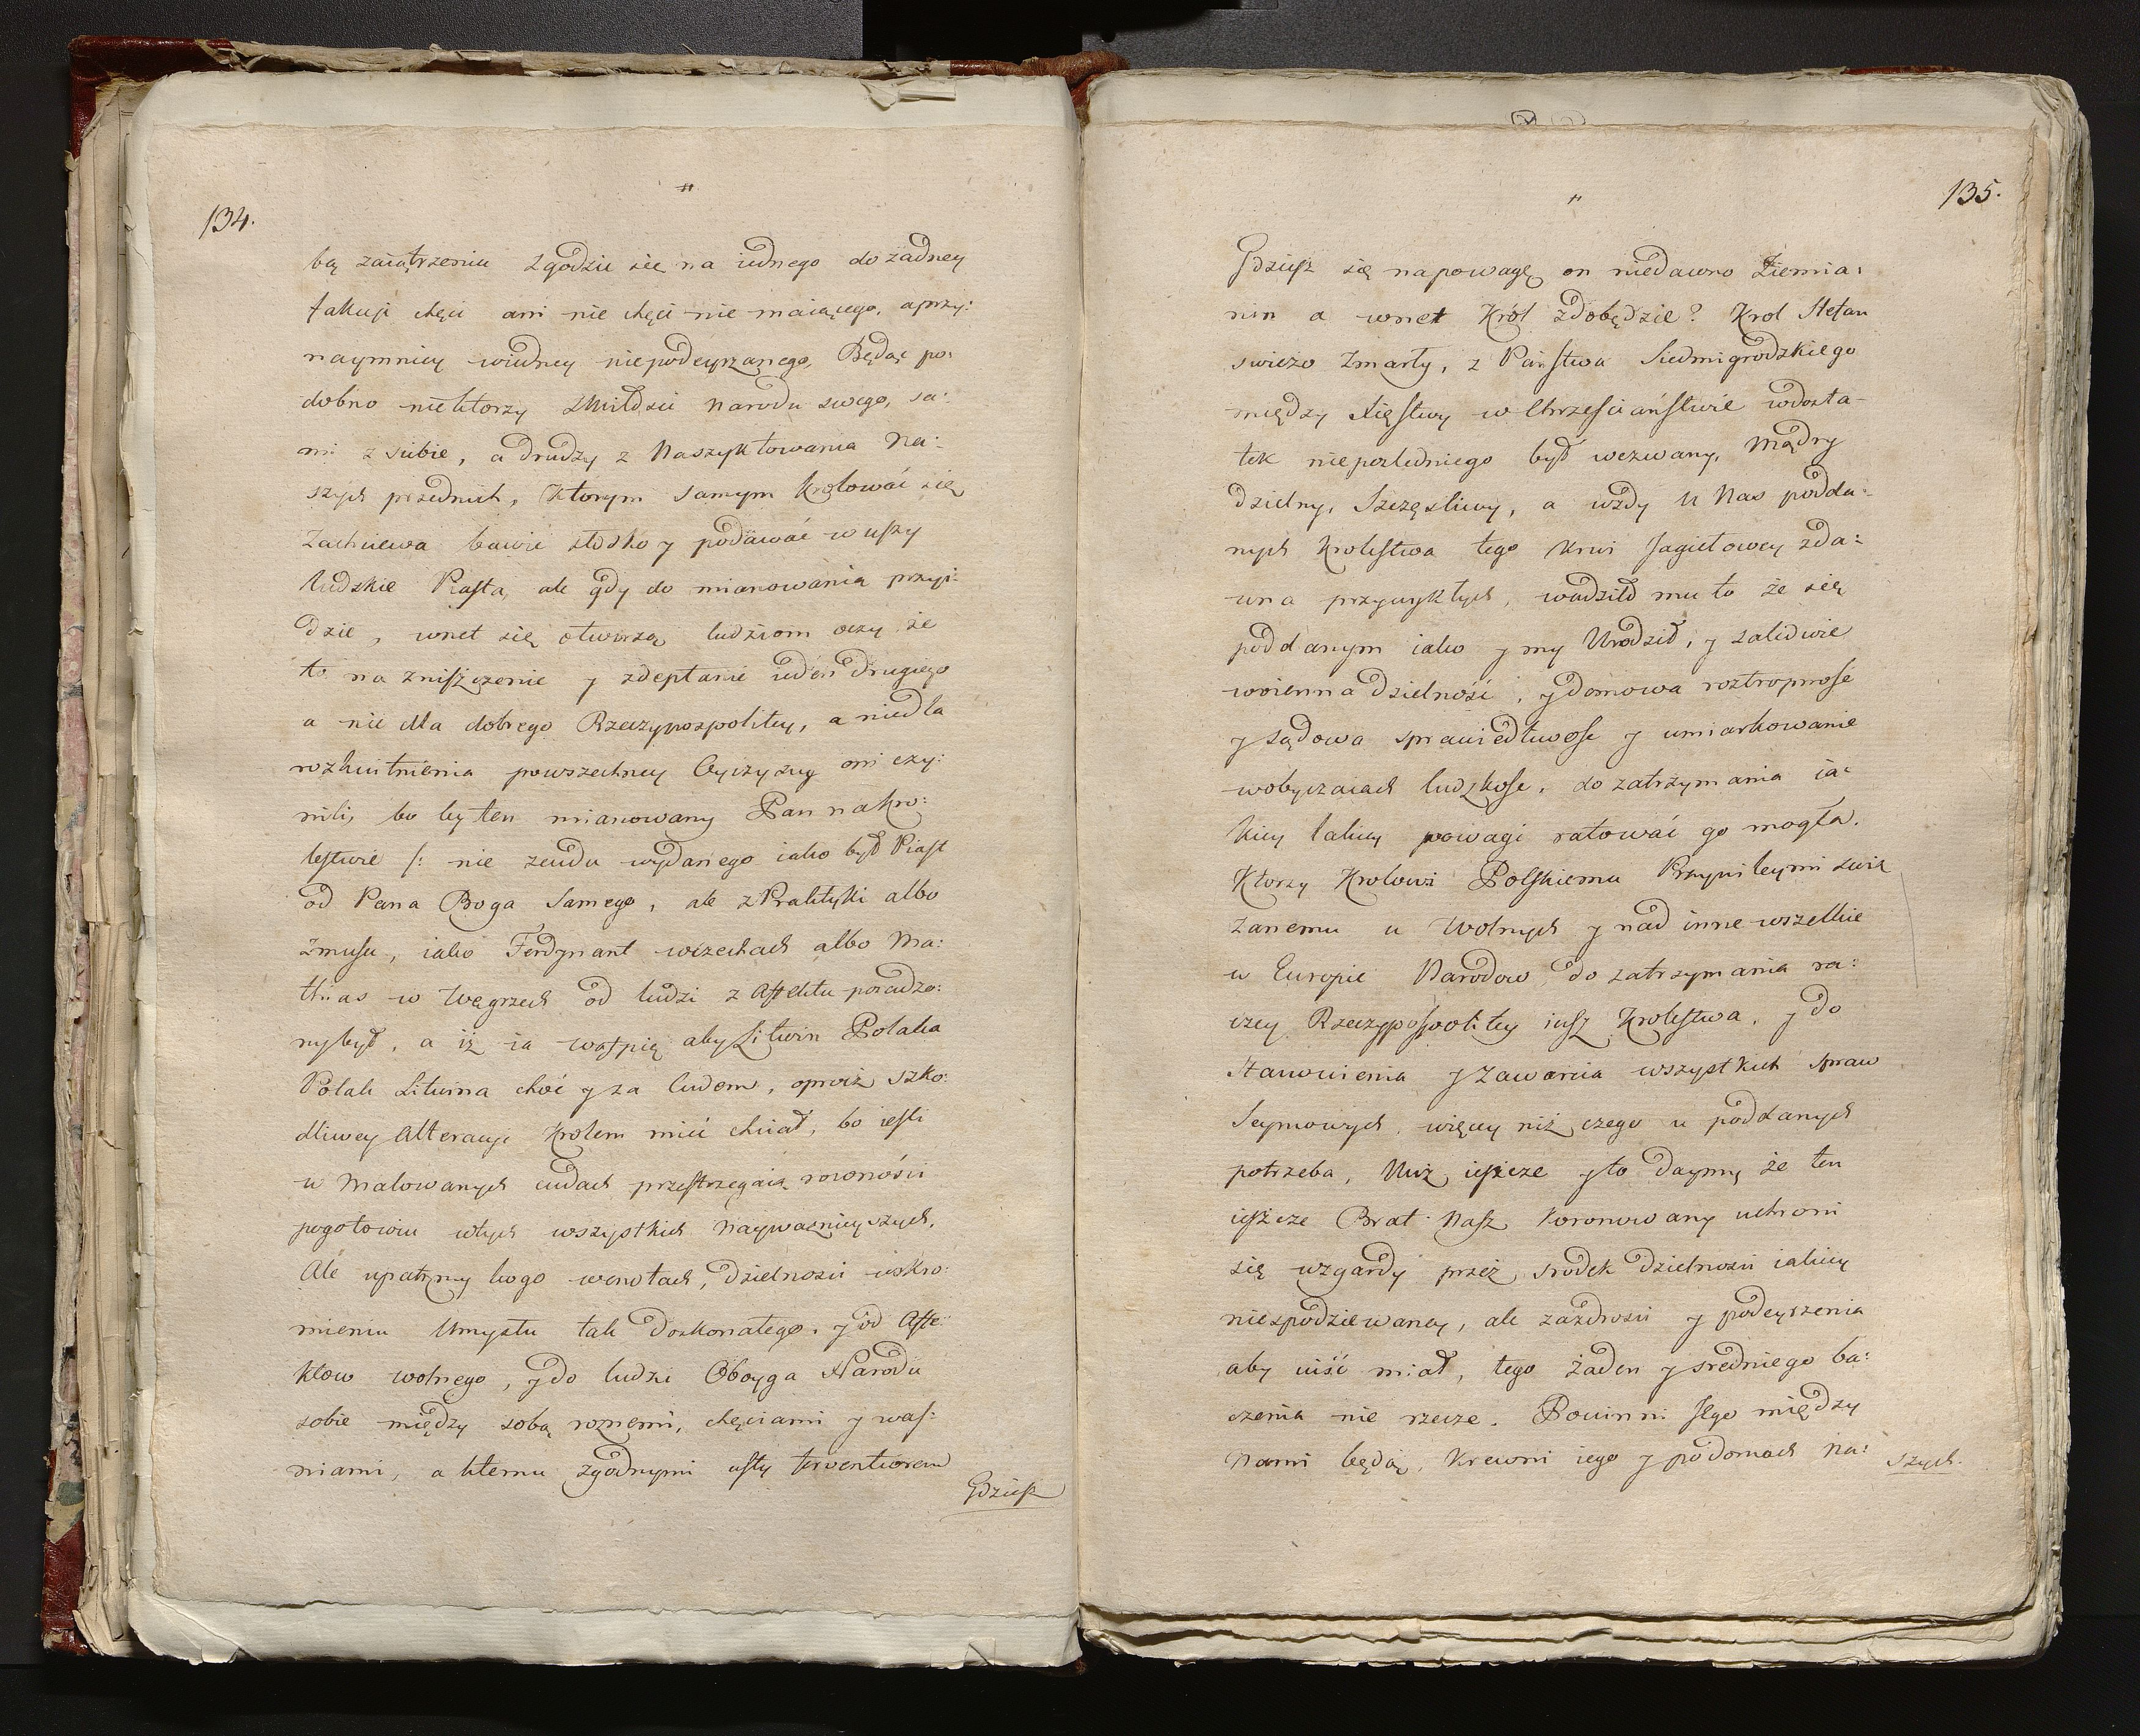 134.
bą zaiątrzeniu zgodzić się na iednego do żadney
fakcji chęci ani nie chęci nie maiącego, a przy:
naymniey wiedney niepodeyrzanego, Będąc po:
dobno niektorzy z ludzi Narodu swego, sa:
mi z siebie, a drudzy z Naszyktowania Na:
szych przednich, ktorym samym krolować się
Zachciewa bawić słodko y podawać w uszy
ludzkie Piasta, ale gdy do mianowania przyi:
dzie, wnet się otworzą ludziom oczy że
to na zniszczenie y zdeptanie ieden drugiego
a nie dla dobrego Rzeczypospolitey, a niedla
rozkwitnienia powszechney Oyczyzny oni czy:
nili, bo by ten mianowany Pan na Kro:
lestwie /: nie zcudu wydanego iako był Piast
od Pana Boga Samego, ale z Praktyki albo
Zmusu, iako Ferdynant wczechach albo Ma:
thias w Węgrzech od ludzi z Affektu poradzo:
ny był, a iż ia wątpię aby Litwin Polaka
Polak Litwina choć y za ludem, oprocz szko:
dliwey Alteracyi Krolem mieć chciał, bo iesli
w Malowanych cudach przestrzegaią rowności
pogotowiu wtych wszystkich Nayważnieyszych.
Ale upatrzmy kogo wcnotach, dzielności wskro:
mieniu Umysłu tak doskonałego, y od Affe:
ktow wolnego, y do ludzi Oboyga Narodu
sobie między sobą roznemi, chęciami y waś:
niami, a ktemu zgodnymi usty
Gdzież
135.
Gdzież się na powagę on niedawno Ziemia:
nin a wnet Król zdobędzie? Krol Stefan
swieżo Zmarły, z Państwa Siedmigrodzkiego
między Xięstwy w Chrześciaństwie wdosta-
tek niepoślednieго był wezwany, Mądry
dzielny, Szczęśliwy, a wżdy u Nas podda:
nych Krolestwa tego Krwi Jagiełowey zda:
wna przywykłych, wadziło mu to że się
poddanym iako y my Urodził, y zaledwie
woienna dzielność, y domowa roztropność
y sądowa sprawiedliwość y umiarkowanie
wobyczaiach ludzkość, do zatrzymania ia:
kiey takiey powagi ratować go mogła.
Ktorzy Krolowi Polskiemu Przywileymi zwią
zanemu u Wolnych y nad inne wszelkie
w Europie Narodow, do zatrzymania ra:
czey Rzeczypospolitey iusz Krolestwa, y do
Stanowienia y Zawarcia wszystkich Spraw
Seymowych, więcey niż czego u poddanych
potrzeba, Nuż iescze y to daymy że ten
iescze Brat Nasz Koronowany uchroni
się wzgardy przez srodek dzielności iakiey
niespodziewaney, ale zazdrości y podeyrzenia
aby uiść miał, tego żaden y sredniego ba:
czenia nie rzecze. Powinni iego między
Nami będąc, Krewni iego y podomach Na:
szych.